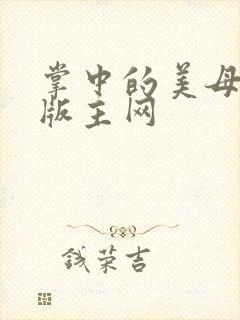 掌中的美母
版主网
钱荣吉